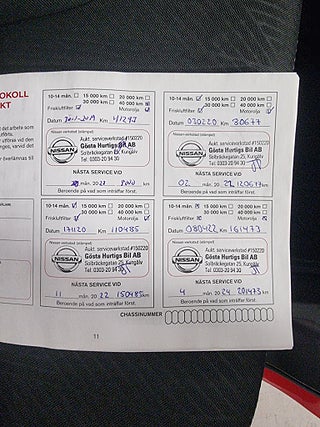 OKOLL
KT
det arbete som
utförts.
överlämnas till
10-14 mån. 15 000 km 20 000 km
30 000 km 40 000 km
Friskluftfilter Motorolja
Datum Km
Nissan-verkstad (stämpel)
Aukt. serviceverkstad #150220
Gösta Hurtigs Bil AB
Solbräckegatan 25, Kungälv
Tel. 0303-20 94 30
NISSAN
NÄSTA SERVICE VID
mån. 20 km
Beroende på vad som inträffar först.
10-14 mån. 15 000 km 20 000 km
30 000 km 40 000 km
Friskluftfilter Motorolja
Datum 030220 Km 30677
Nissan-verkstad (stämpel)
Aukt. serviceverkstad #150220
Gösta Hurtigs Bil AB
Solbräckegatan 25, Kungälv
Tel. 0303-20 94 30
NISSAN
NÄSTA SERVICE VID
02 mån. 20 km
Beroende på vad som inträffar först.
10-14 mån. 15 000 km 20 000 km
30 000 km 40 000 km
Friskluftfilter Motorolja
Datum 171120 Km 110485
Nissan-verkstad (stämpel)
Aukt. serviceverkstad #150220
Gösta Hurtigs Bil AB
Solbräckegatan 25, Kungälv
Tel. 0303-20 94 30
NISSAN
NÄSTA SERVICE VID
11 mån. 20 22 150485 km
Beroende på vad som inträffar först.
10-14 mån. 15 000 km 20 000 km
30 000 km 40 000 km
Friskluftfilter Motorolja
Datum 080422 Km 161473
Nissan-verkstad (stämpel)
Aukt. serviceverkstad #150220
Gösta Hurtigs Bil AB
Solbräckegatan 25, Kungälv
Tel. 0303-20 94 30
NISSAN
NÄSTA SERVICE VID
4 mån. 20 24 201473 km
Beroende på vad som inträffar först.
CHASSINUMMER
11